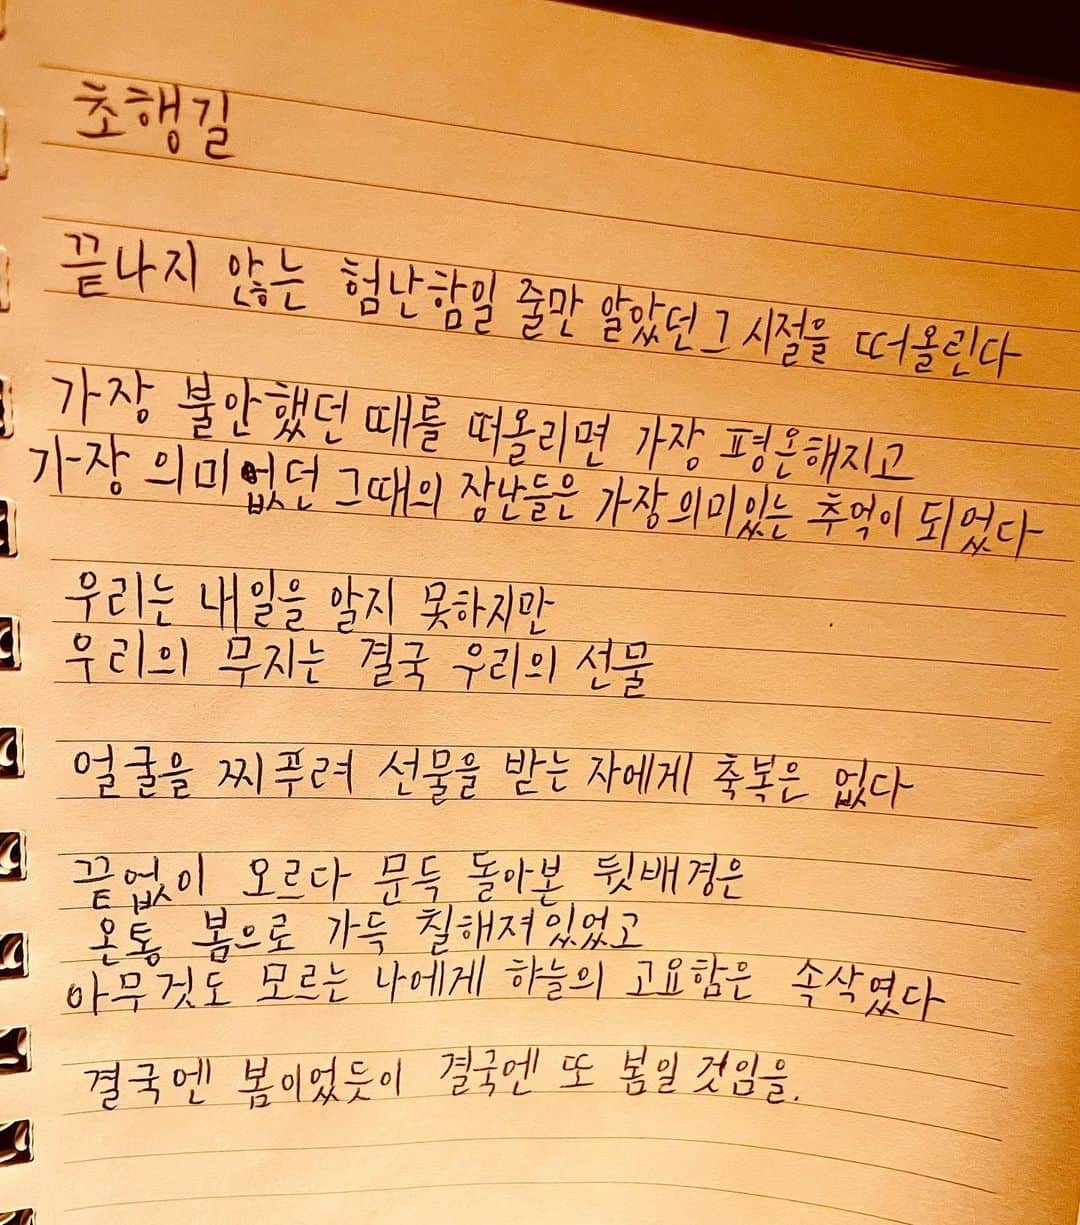 초행길
끝나지 않는 험난함일 줄만 알았던 그 시절을 떠올린다
가장 불안했던 때를 떠올리면 가장 평온해지고
가장 의미없던 그때의 장난들은 가장 의미있는 추억이 되었다
우리는 내일을 알지 못하지만
우리의 무지는 결국 우리의 선물
얼굴을 찌푸려 선물을 받는 자에게 축복은 없다
끝없이 오르다 문득 돌아본 뒷배경은
온통 봄으로 가득 칠해져있었고
아무것도 모르는 나에게 하늘의 고요함은 속삭였다
결국엔 봄이었듯이 결국엔 또 봄일 것임을.